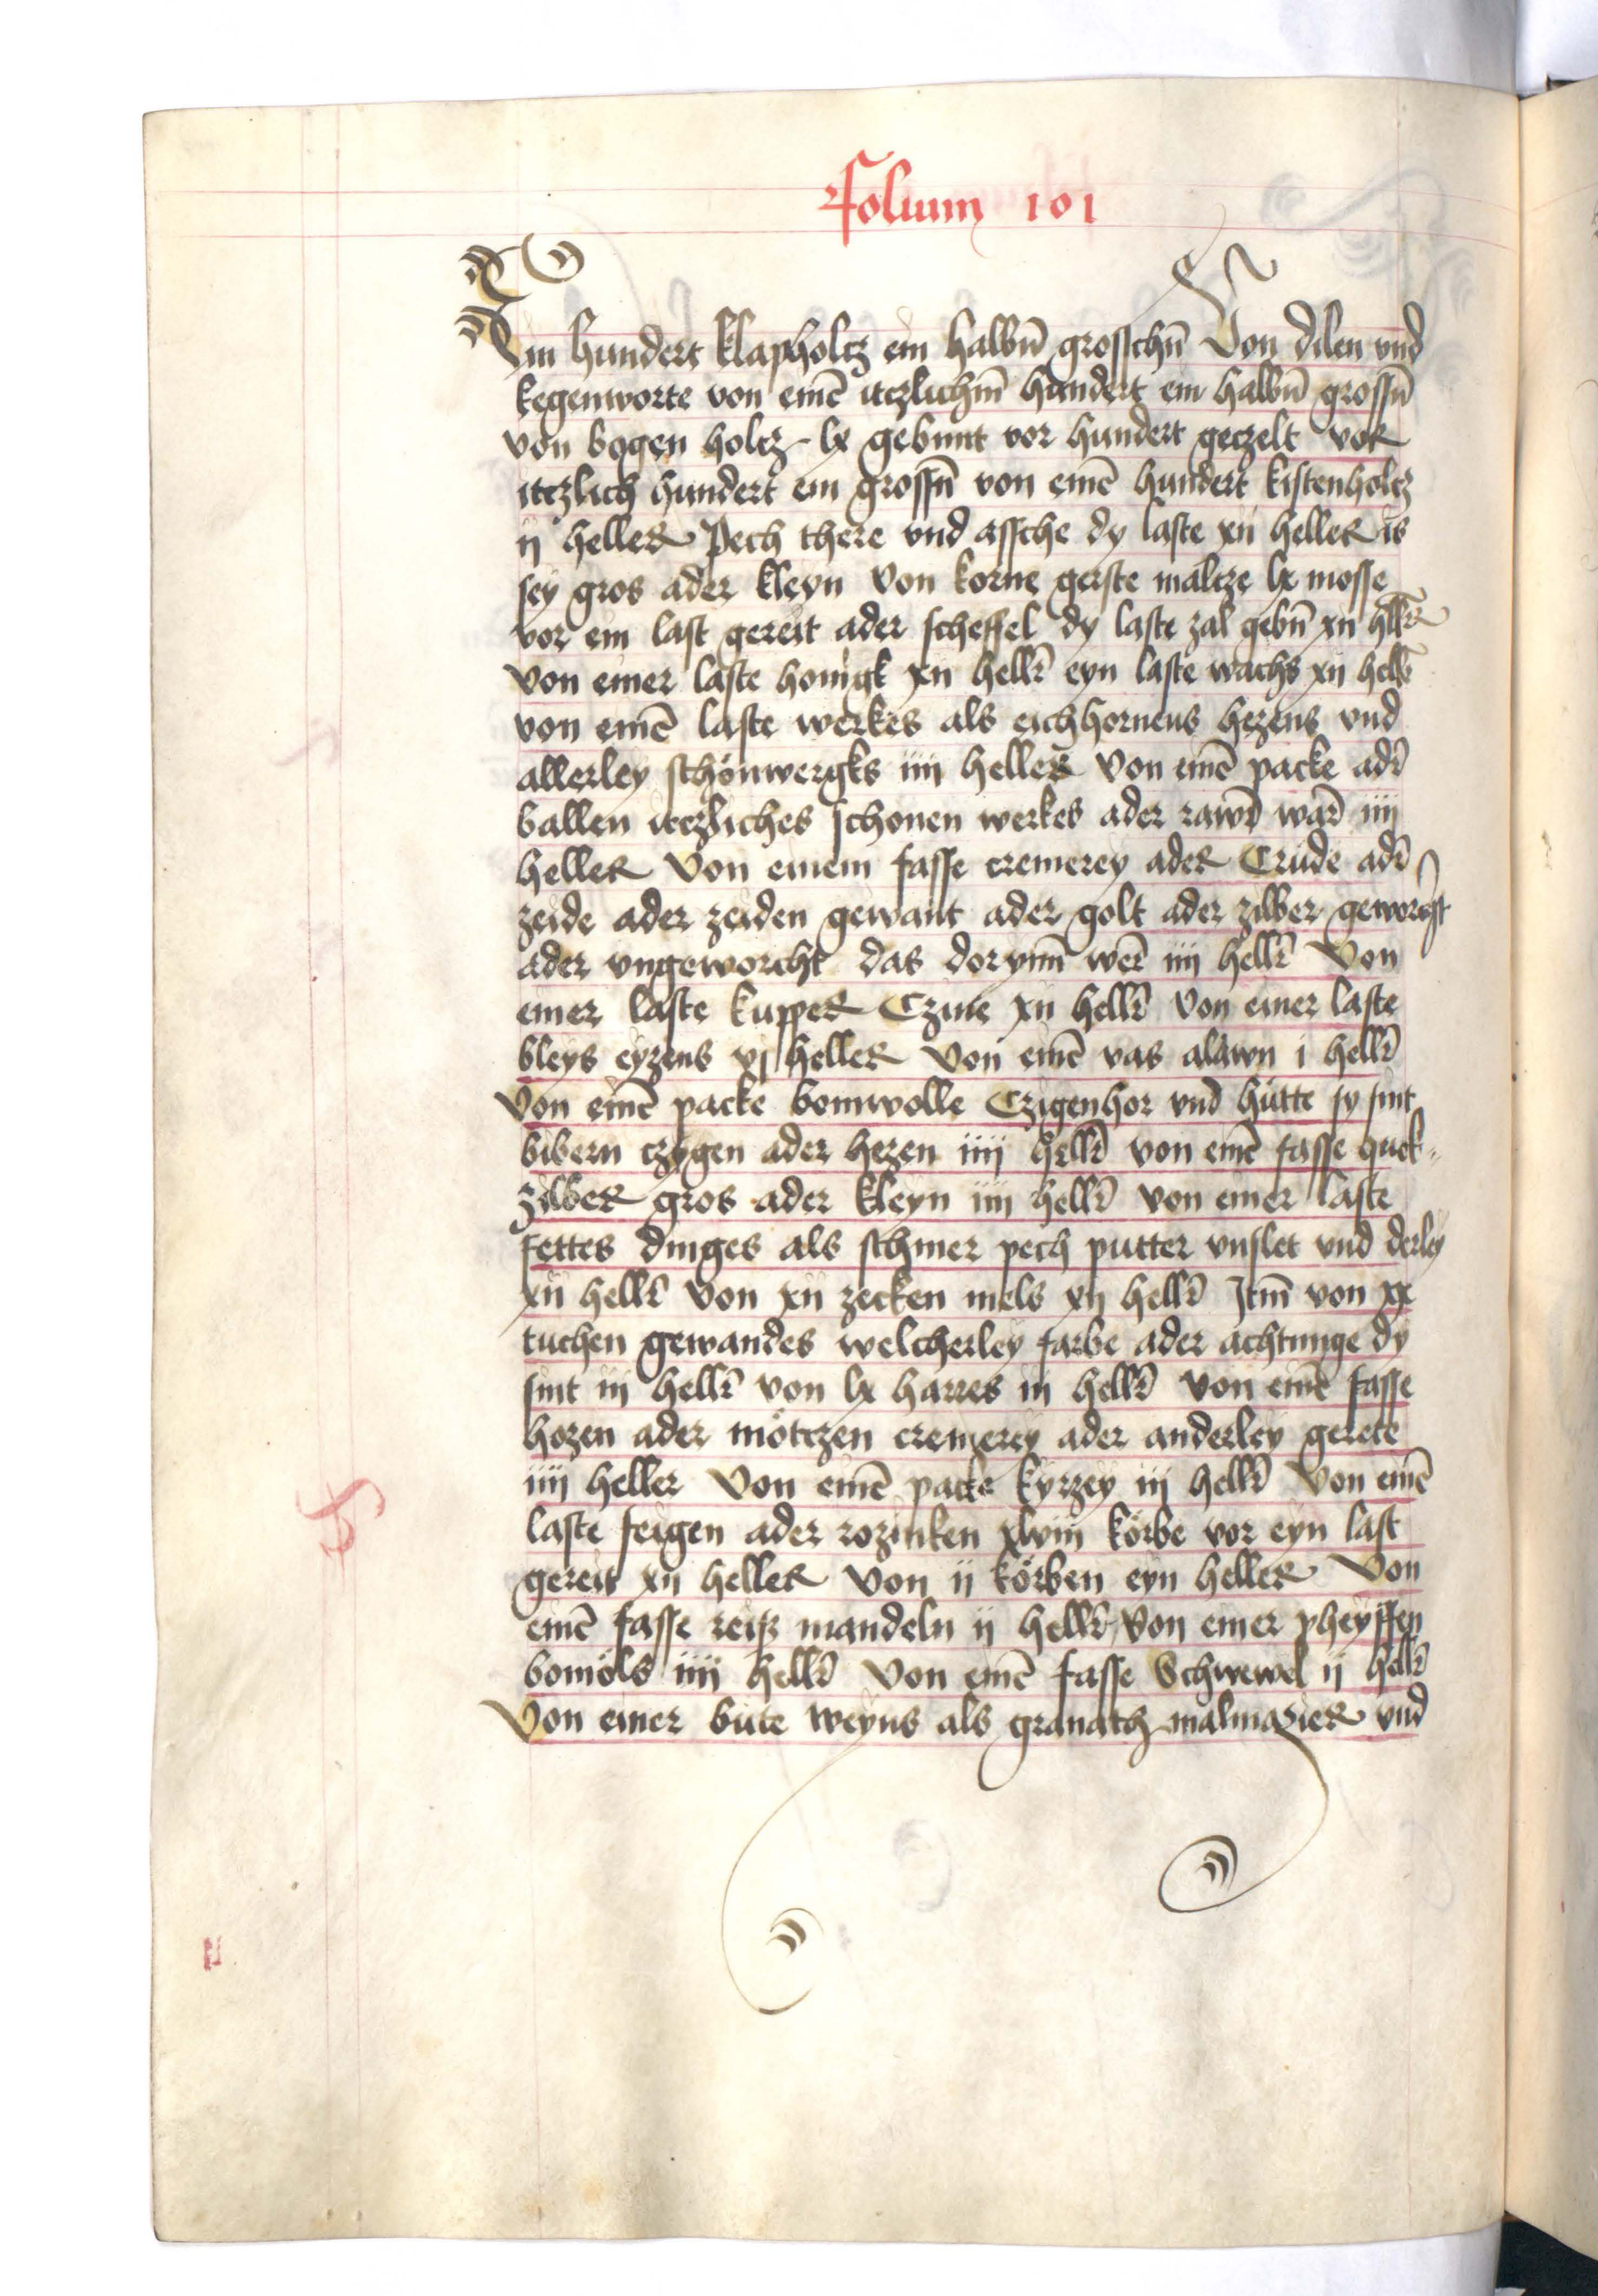 Folium 101
Ein hundert klapholtz ein halbn̄ grosschn̄ Von dilen vnd
kegenworte von einē itzlichm̄ hundert ein halbn̄ grossn̄
von bogen holtz lx gebunt vor hundert geczelt vor
itzlich hundert ein grossn̄ von einē hundert kistenholtz
ij heller Pech there vnd assche dy laste xij heller is
sey gros ader kleyn Von korne gerste maltze lx mosse
vor ein last gereit ader scheffel dy laste zal gebn̄ xij hllr̄
von einer laste honigk xij hellr̄ eyn laste wachs xij hellr̄
von einē laste werkes als eichhornens hezens vnd
allerley schönwergks iiij heller Von einē packe adr̄
ballen itczliches schonen werkes ader rawr̄ war̄ iiij
heller Von einem fasse cremerey ader Crude adr̄
zeide ader zeiden gewant ader golt ader zilber geworcht
ader vngeworcht das dorynn̄ wer̄ iiij hellr̄ Von
einer laste kupper Czine xij hellr̄ Von einer laste
bleys eyzens vj heller Von einē vas alawn i hellr̄
Von einē packe bomwolle Czigenhor vnd hütte sy sint
bibern czygen ader hezen iiij hellr̄ von einē fasse quek-
zilber gros ader kleyn iiij hellr̄ von einer laste
fettes dinges als schmer pech putter vnslet vnd derley
xij hellr̄ Von xij zecken mels xij hellr̄ Itm̄ von xx
tuchen gewandes welcherley farbe ader achtunge dy
sint iij hellr̄ von lx harres iij hellr̄ Von einē fasse
hozen ader mötczen cremerey ader anderley gerete
iiij heller Von einē packe kyrzey iij hellr̄ Von einē
laste feigen ader rozinken xlviij körbe vor eyn last
gereit xij heller Von ij körben eyn heller Von
einē fasse reiß mandeln ij hellr̄ Von einer pheyffen
bomöls iiij hellr̄ Von einē fasse Schwewel ij hellr̄
Von einer bute weyns als granatz malmazier vnd